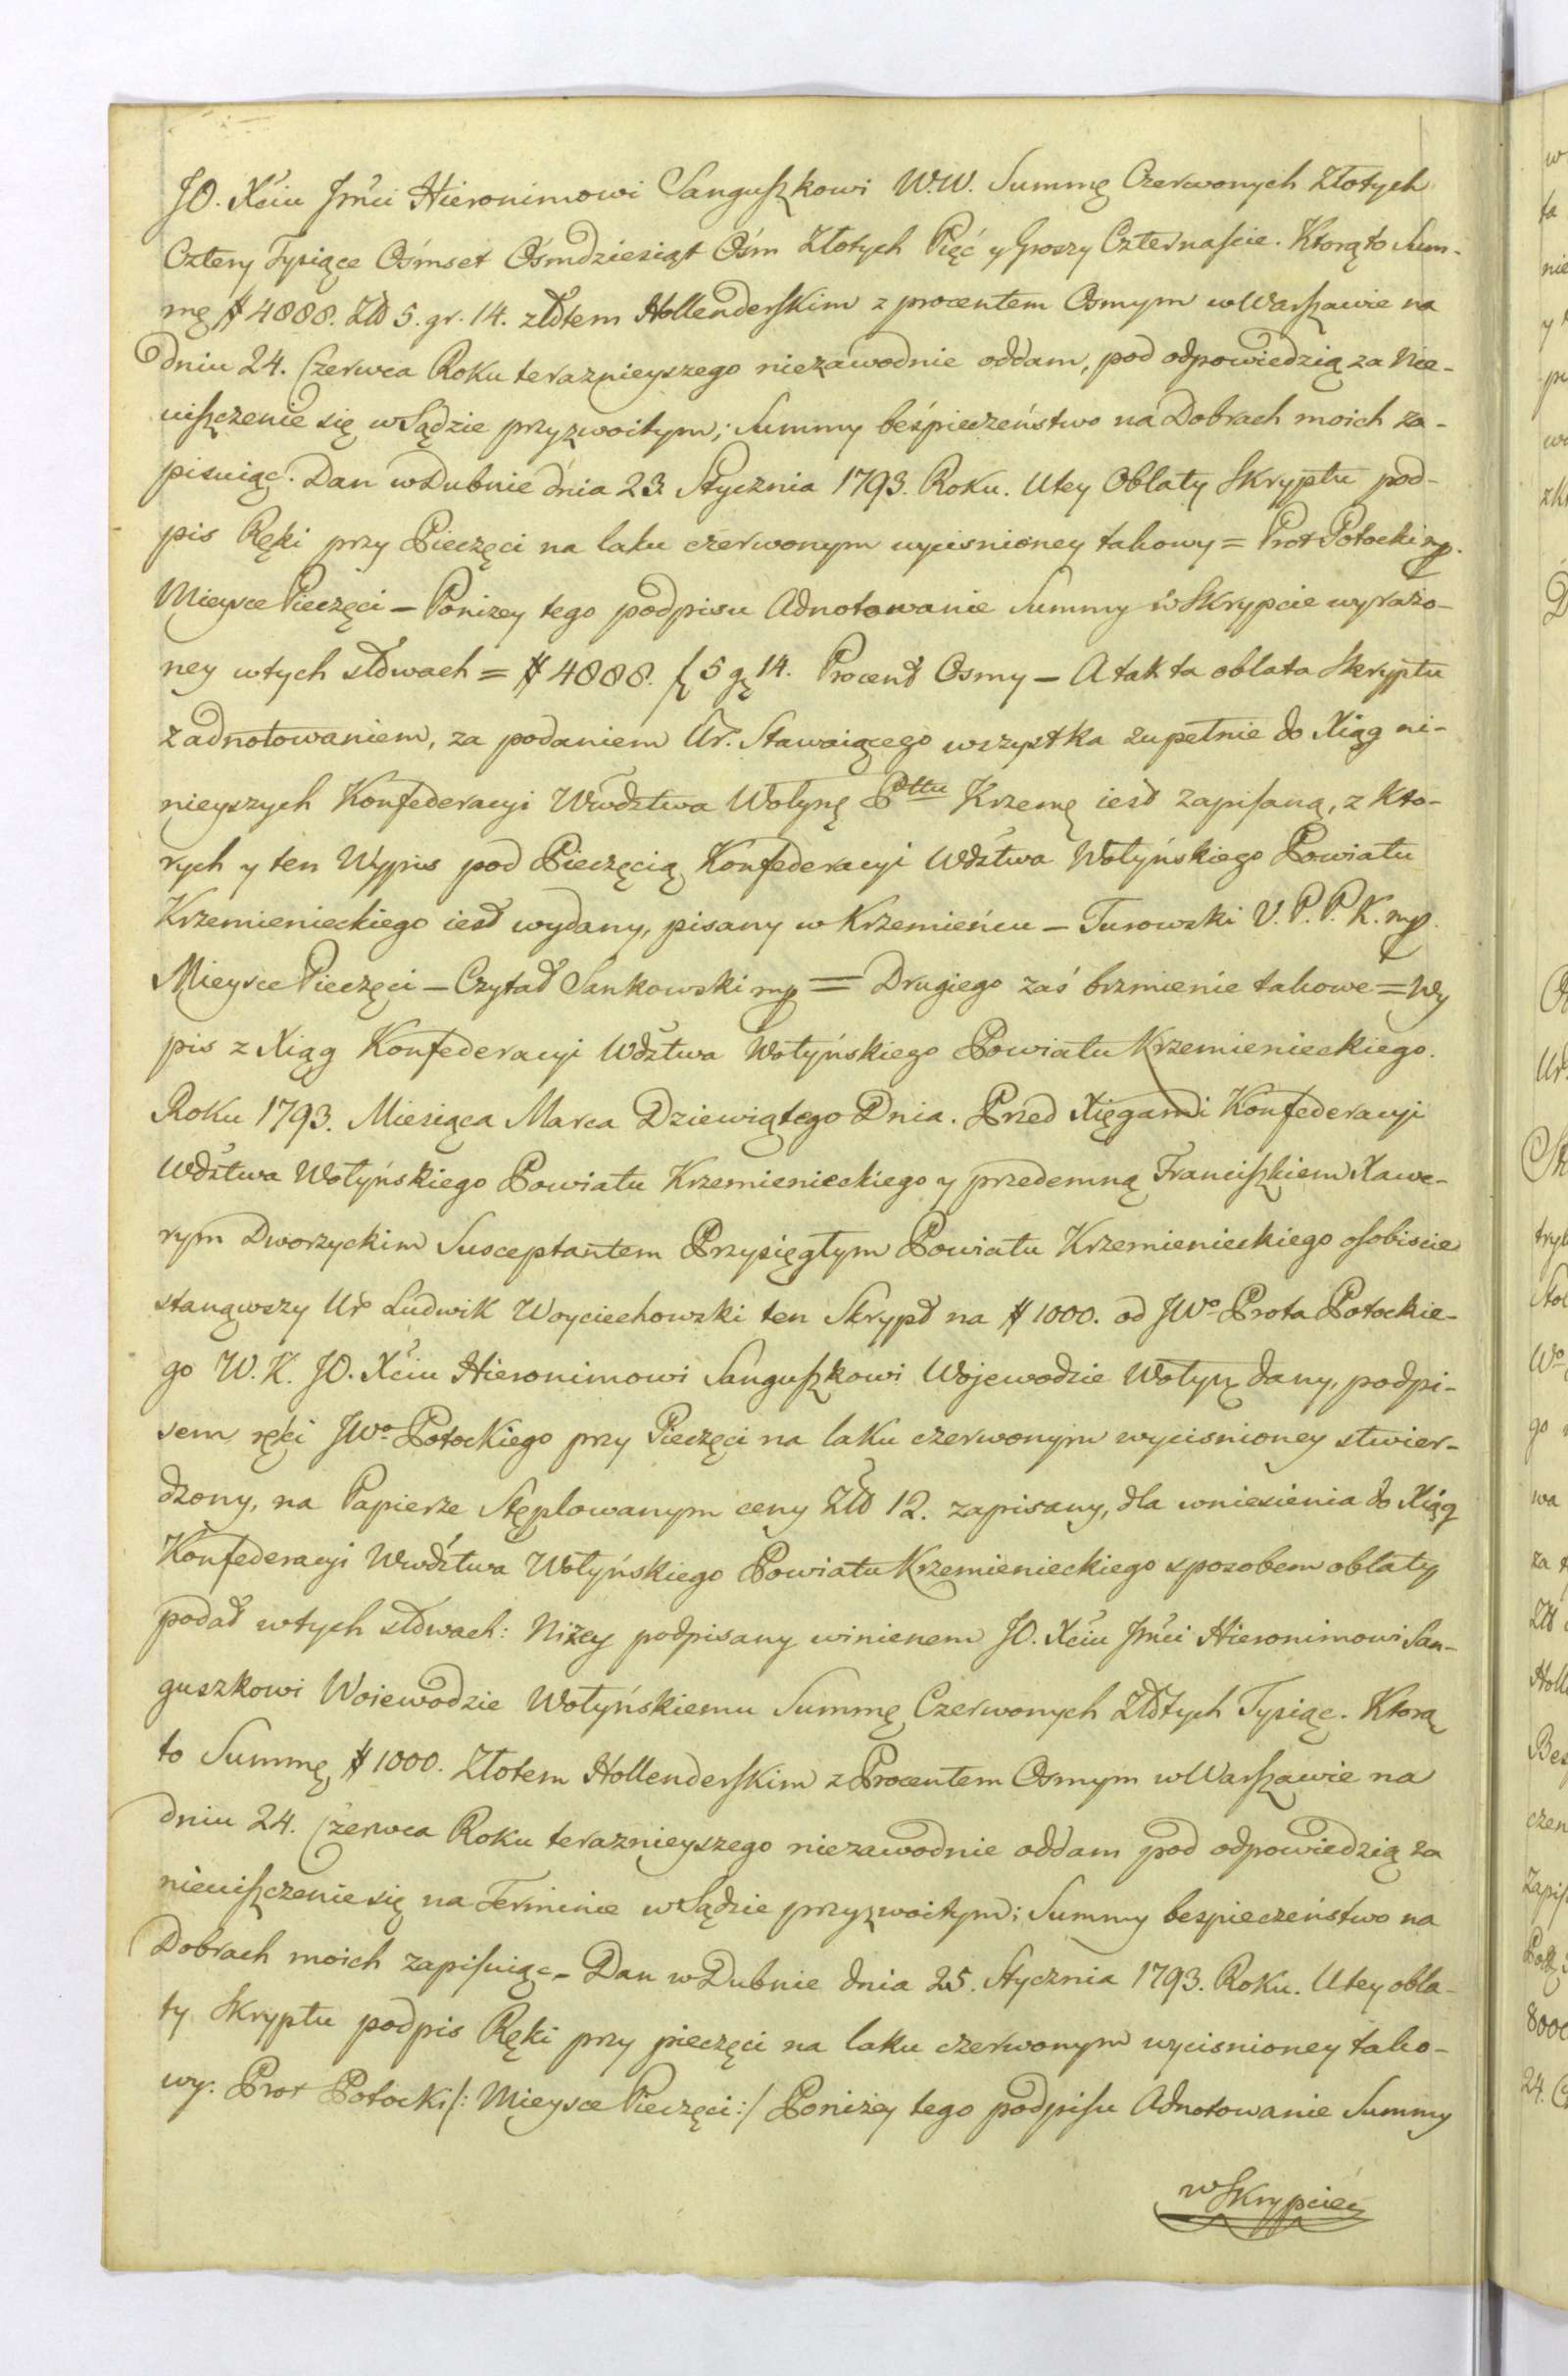 JO. Xćiu Jmći Hieronimowi Sanguſzkowi W.W. Summę Czerwonych Złotych
Cztery Tysiące Ośmset Ośmdziesiąt Ośm Złotych Pięć y Groszy Czternaście. Ktorą to Sum-
mę # 4888. Zł 5. gr. 14. złotem Hollenderſkim z procentem Osmym w Warſzawie na
dniu 24. Czerwca Roku teraznieyszego niezawodnie oddam, pod odpowiedzią za Nie-
uiſzczenie się w Sądzie przyzwoitym; Summy beśpieczeństwo na Dobrach moich za-
pisuiąc. Dan w Dubnie dnia 23. Stycznia 1793. Roku. U tey Oblaty Skryptu pod-
pis Ręki przy Pieczęci na laku czerwonym wycisnioney takowy = Prot Potocki mp.
Mieysce Pieczęci – Poniżey tego podpisu Adnotowanie Summy w Skrypcie wyrażo-
ney w tych słowach = # 4888. f 5 gr 14. Procent Osmy – A tak ta oblata Skryptu
z adnotowaniem, za podaniem Ur. Stawaiącego wszystka zupełnie do Xiąg ni-
nieyszych Konfederacyi Wwdztwa Wołyn Pttu Krzem iest zapiſaną, z kto-
rych y ten Wypis pod Pieczęcią Konfederacyi Wdztwa Wołyńskiego Powiatu
Krzemienieckiego iest wydany, pisany w Krzemieńcu – Turowski V. P. P. K. mp.
Mieysce Pieczęci – Czytał Sankowski mp = Drugiego zaś brzmienie takowe = Wy
pis z Xiąg Konfederacyi Wdztwa Wołyńskiego Powiatu Krzemienieckiego.
Roku 1793. Miesiąca Marca Dziewiątego Dnia. Przed Xięgami Konfederacyi
Wdztwa Wołyńskiego Powiatu Krzemienieckiego y przedemną Franciſzkiem Xawe-
rym Dworzyckim Susceptantem Przysięgłym Powiatu Krzemienieckiego oſobiscie
stanąwszy Ur Ludwik Woyciechowski ten Skrypt na # 1000. od JWo Prota Potockie-
go W. K. JO. Xćiu Hieronimowi Sanguſzkowi Wojewodzie Wołyn dany, podpi-
sem ręki JWo Potockiego przy Pieczęci na laku czerwonym wycisnioney stwier-
dzony, na Papierze Stęplowanym ceny Zł 12. zapisany, dla wniesienia do Xiąg
Konfederacyi Wwdztwa Wołyńskiego Powiatu Krzemienieckiego sposobem oblaty
podał w tych słowach: Niżey podpisany winienem JO. Xćiu Jmći Hieronimowi San-
guszkowi Woiewodzie Wołyńskiemu Summę Czerwonych Złotych Tysiąc. Ktorą
to Summę # 1000. Złotem Hollenderſkim z Procentem Osmym w Warſzawie na
dniu 24. Czerwca Roku teraznieyszego niezawodnie oddam pod odpowiedzią za
nieuiſzczenie się na Terminie w Sądzie przyzwoitym; Summy bezpieczeństwo na
Dobrach moich zapiſuiąc – Dan w Dubnie dnia 25. Stycznia 1793. Roku. U tey obla-
ty Skryptu podpis Ręki przy pieczęci na laku czerwonym wycisnioney tako-
wy. Prot Potocki /: Mieysce Pieczęci :/ Poniżey tego podpiſu Adnotowanie Summy
w Skrypcie